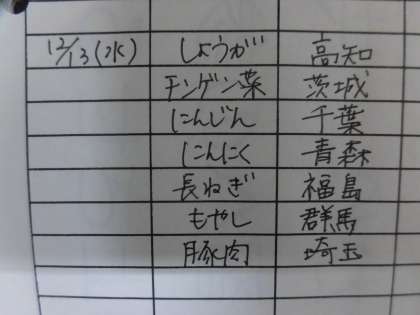 12/13(水) しょうが 高知
チンゲン菜 茨城
にんじん 千葉
にんにく 青森
長ねぎ 福島
もやし 群馬
豚肉 埼玉